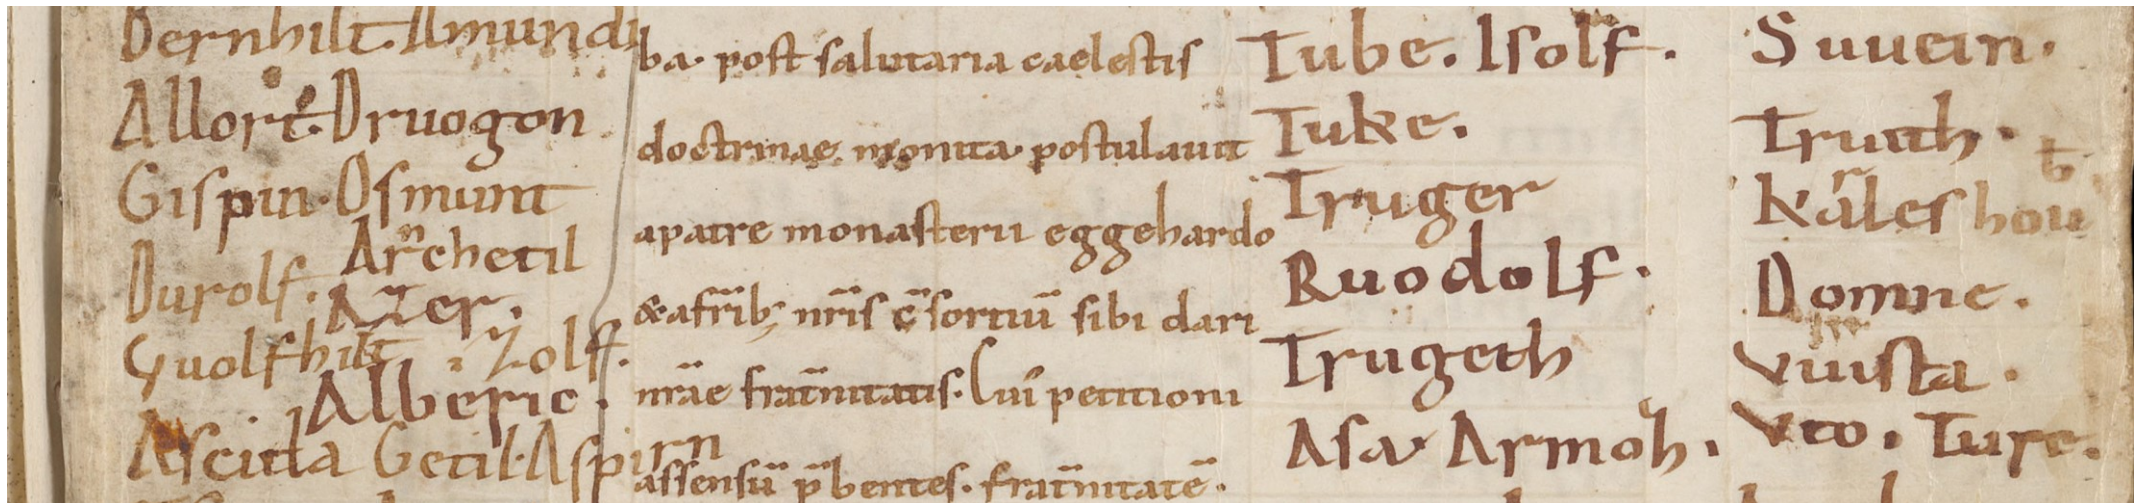 Bernhilt. Amundi
Allort. Druogon
Gispin. Osmunt
Arnchetil
Durolf.
Azer.
Guolfhilt. Zolf.
Alberic.
Ascilla Getil. Aspirn
ba. post salutaria caelestis
doctrinae. monita postulauit
apatre monasterii eggehardo
&afrīb; nr̄is c̄sortiū sibi dari
nr̄ae frat̄nitatis. Cui petitioni
assensū p̄bentes. frat̄nitatē.
Tube. Isolf.
Tuke.
Truger
Ruodolf.
Trugeth
Asa Armoh.
Suuein.
Truth.
Karleshout
Domne.
Vuista.
Vto. Ture.